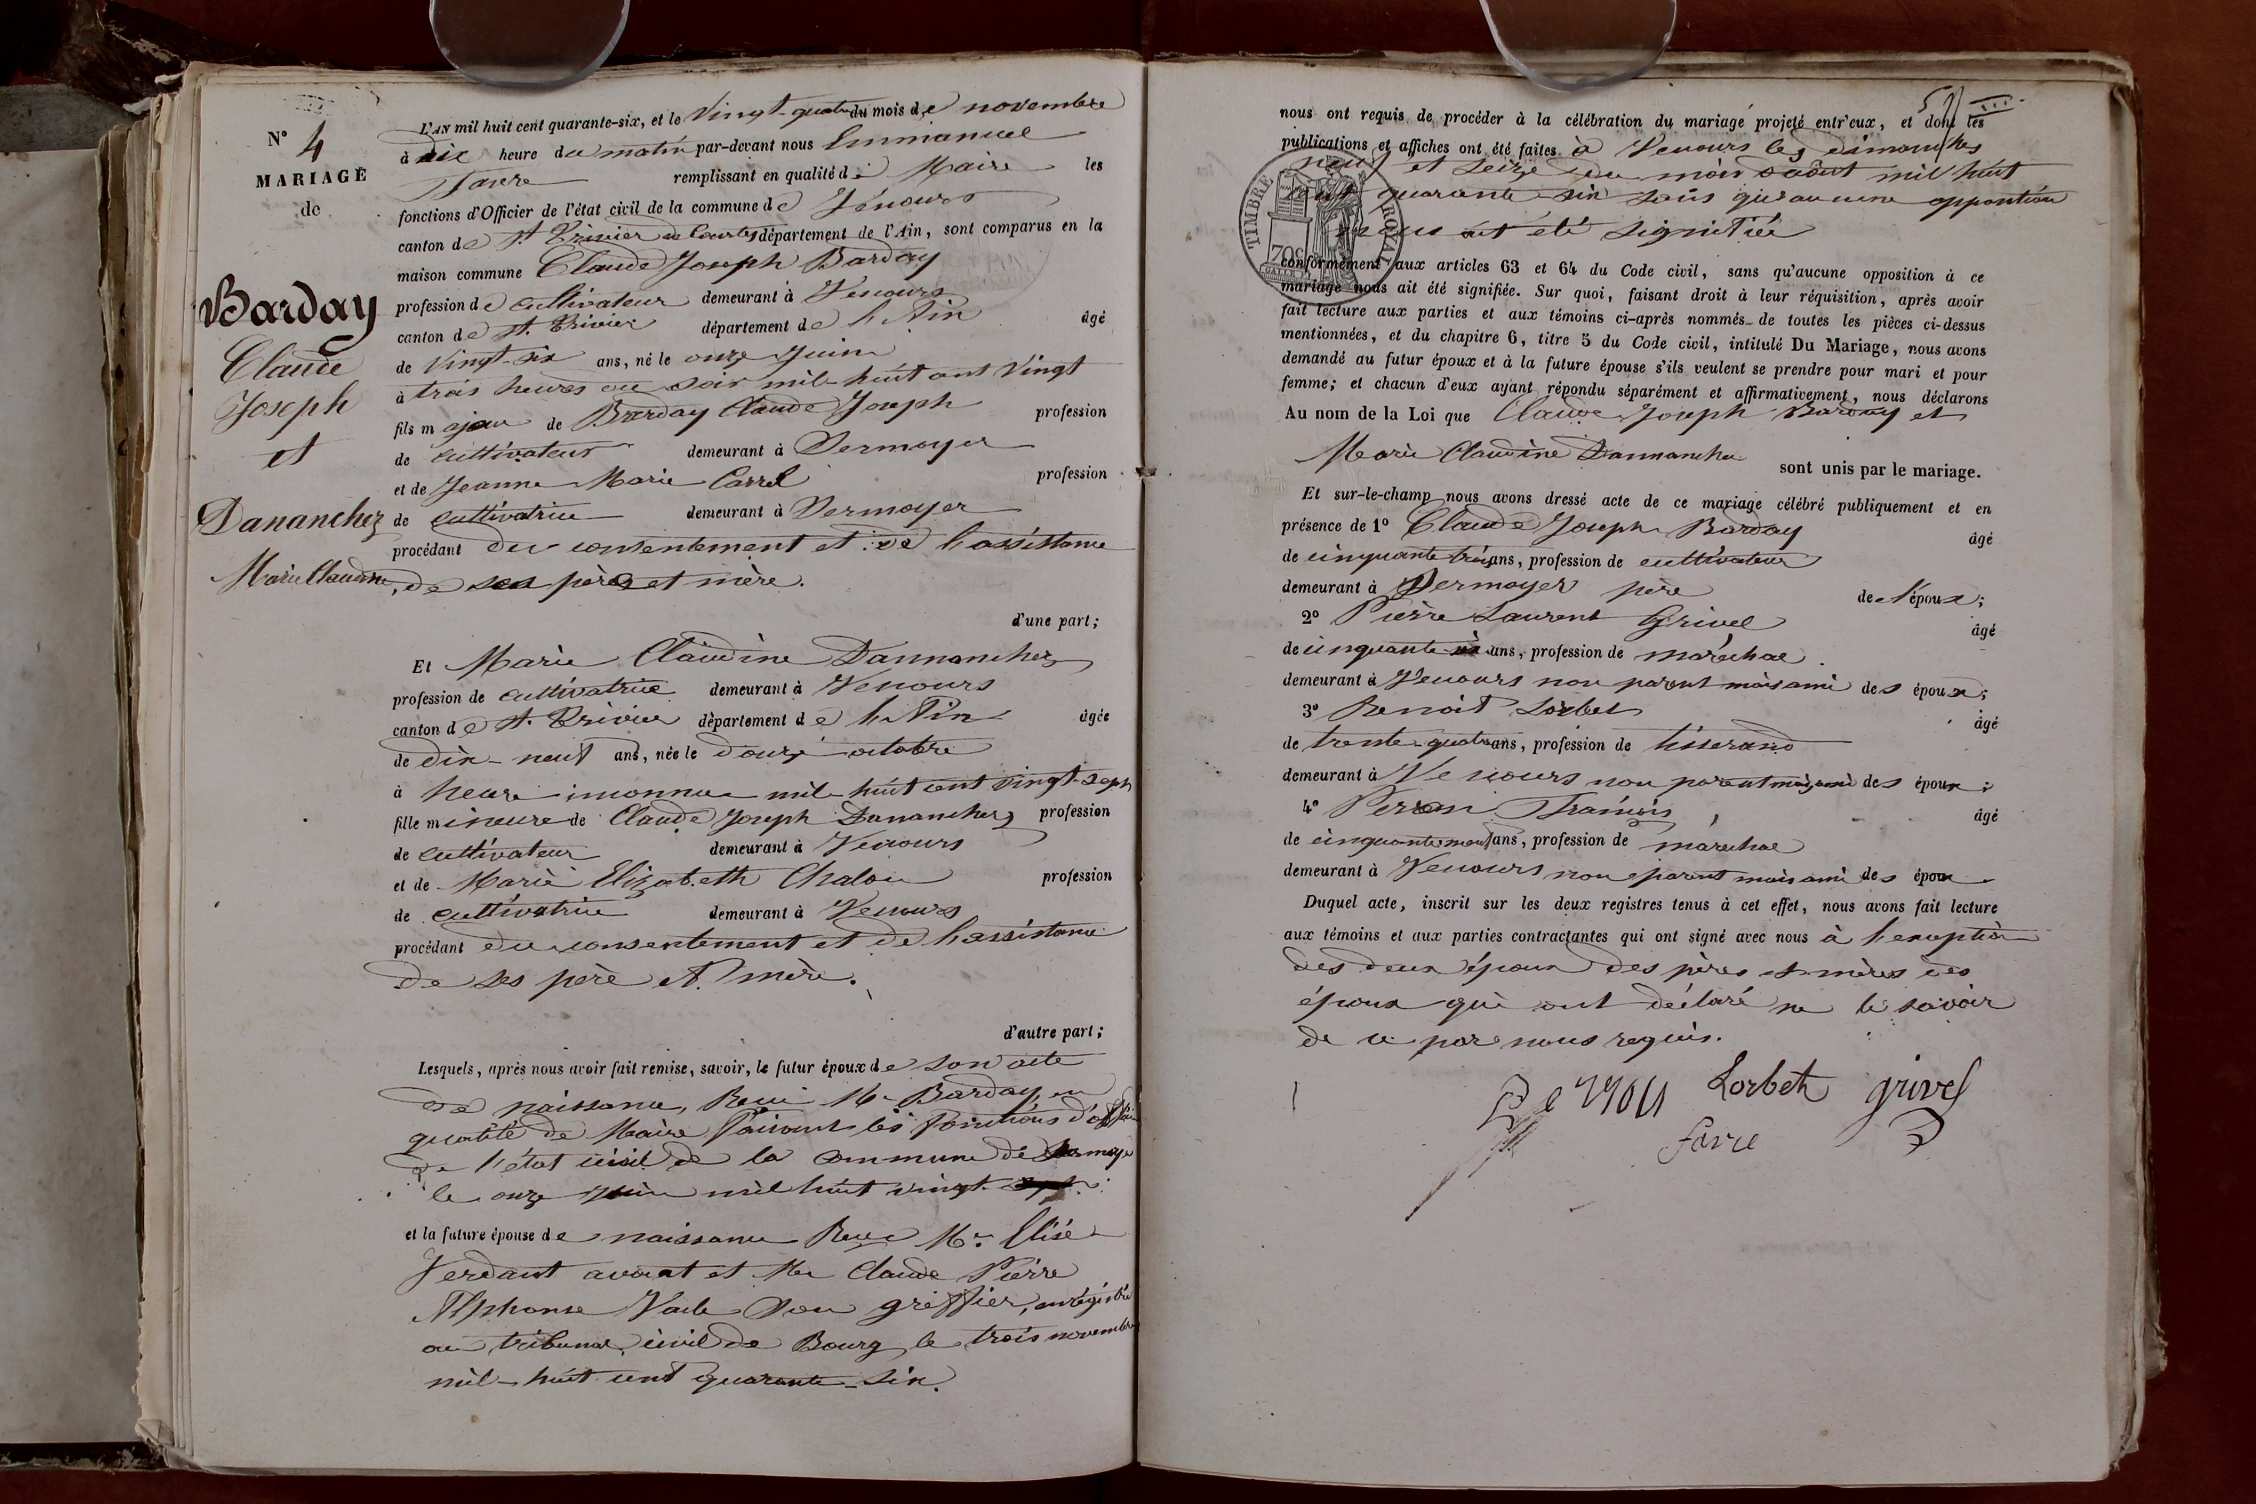 N° 4
MARIAGE
de
Barday
Claude
Joseph
et
Dananchez
Marie Claudine
L'AN mil huit cent quarante-six, et le vingt-quatre du mois de novembre
à dix heure du matin par-devant nous Emmanuel
Favre remplissant en qualité de Maire les
fonctions d'Officier de l'état civil de la commune de
canton de St. Trivier de Courtes département de l'Ain, sont comparus en la
maison commune Claude Joseph Barday
profession de cultivateur demeurant à
canton de St. Trivier département de l'Ain âgé
de vingt-six ans, né le onze Juin
à trois heures du soir mil-huit cent vingt
fils majeur de Barday Claude Joseph profession
de cultivateur demeurant à Vermoyer
et de Jeanne Marie Carrel profession
de cultivatrice demeurant à Vermoyer
procédant du consentement et de l'assistance
de ses père et mère.
d'une part;
Et Marie Claudine Dannanchez
profession de cultivatrice demeurant à
canton de St. Trivier département de l'Ain âgée
de dix-neuf ans, née le douze octobre
à heure inconnue mil-huit cent vingt-sept
fille mineure de Claude Joseph Dananchez profession
de cultivateur demeurant à
et de Marie Elizabeth Chalon profession
de cultivatrice demeurant à
procédant du consentement et de l'assistance
de ses père et mère.
d'autre part;
Lesquels, après nous avoir fait remise, savoir, le futur époux de son acte
de naissance, Reçu Mr Barday, en
qualité de Maire faisant les fonctions d'officier
de l'état civil de la commune de
le onze Juin mil huit vingt
et la future épouse de naissance Reçu Mr. Elisé
Verdant avocat et Me Claude Pierre
Alphonse son greffier, enrégistré
au tribunal civil de Bourg le trois novembre
mil-huit cent quarante-six.
nous ont requis de procéder à la célébration du mariage projeté entr'eux, et dont les
publications et affiches ont été faites à les dimanches
neuf et seize du mois d'août mil huit
cent quarante-six sans qu'aucune opposition
nous ait été signifiée
TIMBRE ROYAL
70c
conformément aux articles 63 et 64 du Code civil, sans qu'aucune opposition à ce
mariage nous ait été signifiée. Sur quoi, faisant droit à leur réquisition, après avoir
fait lecture aux parties et aux témoins ci-après nommés de toutes les pièces ci-dessus
mentionnées, et du chapitre 6, titre 5 du Code civil, intitulé Du Mariage, nous avons
demandé au futur époux et à la future épouse s'ils veulent se prendre pour mari et pour
femme; et chacun d'eux ayant répondu séparément et affirmativement, nous déclarons
Au nom de la Loi que Claude Joseph Barday et
Marie Claudine Dannanchez sont unis par le mariage.
Et sur-le-champ nous avons dressé acte de ce mariage célébré publiquement et en
présence de 1° Claude Joseph Barday âgé
de cinquante trois ans, profession de cultivateur
demeurant à Vermoyer père de l'époux;
2° Pierre Laurent Grivel âgé
de cinquante ans, profession de maréchal
demeurant à non parent mais ami des époux;
3° Benoit Lorbet âgé
de trente-quatre ans, profession de tisserand
demeurant à non parent mais ami des époux;
4° François âgé
de cinquante neuf ans, profession de maréchal
demeurant à non parent mais ami des époux
Duquel acte, inscrit sur les deux registres tenus à cet effet, nous avons fait lecture
aux témoins et aux parties contractantes qui ont signé avec nous à l'exception
des deux époux des pères et mères des
époux qui ont déclaré ne le savoir
de ce par nous requis.
Lorbet grivel
favre